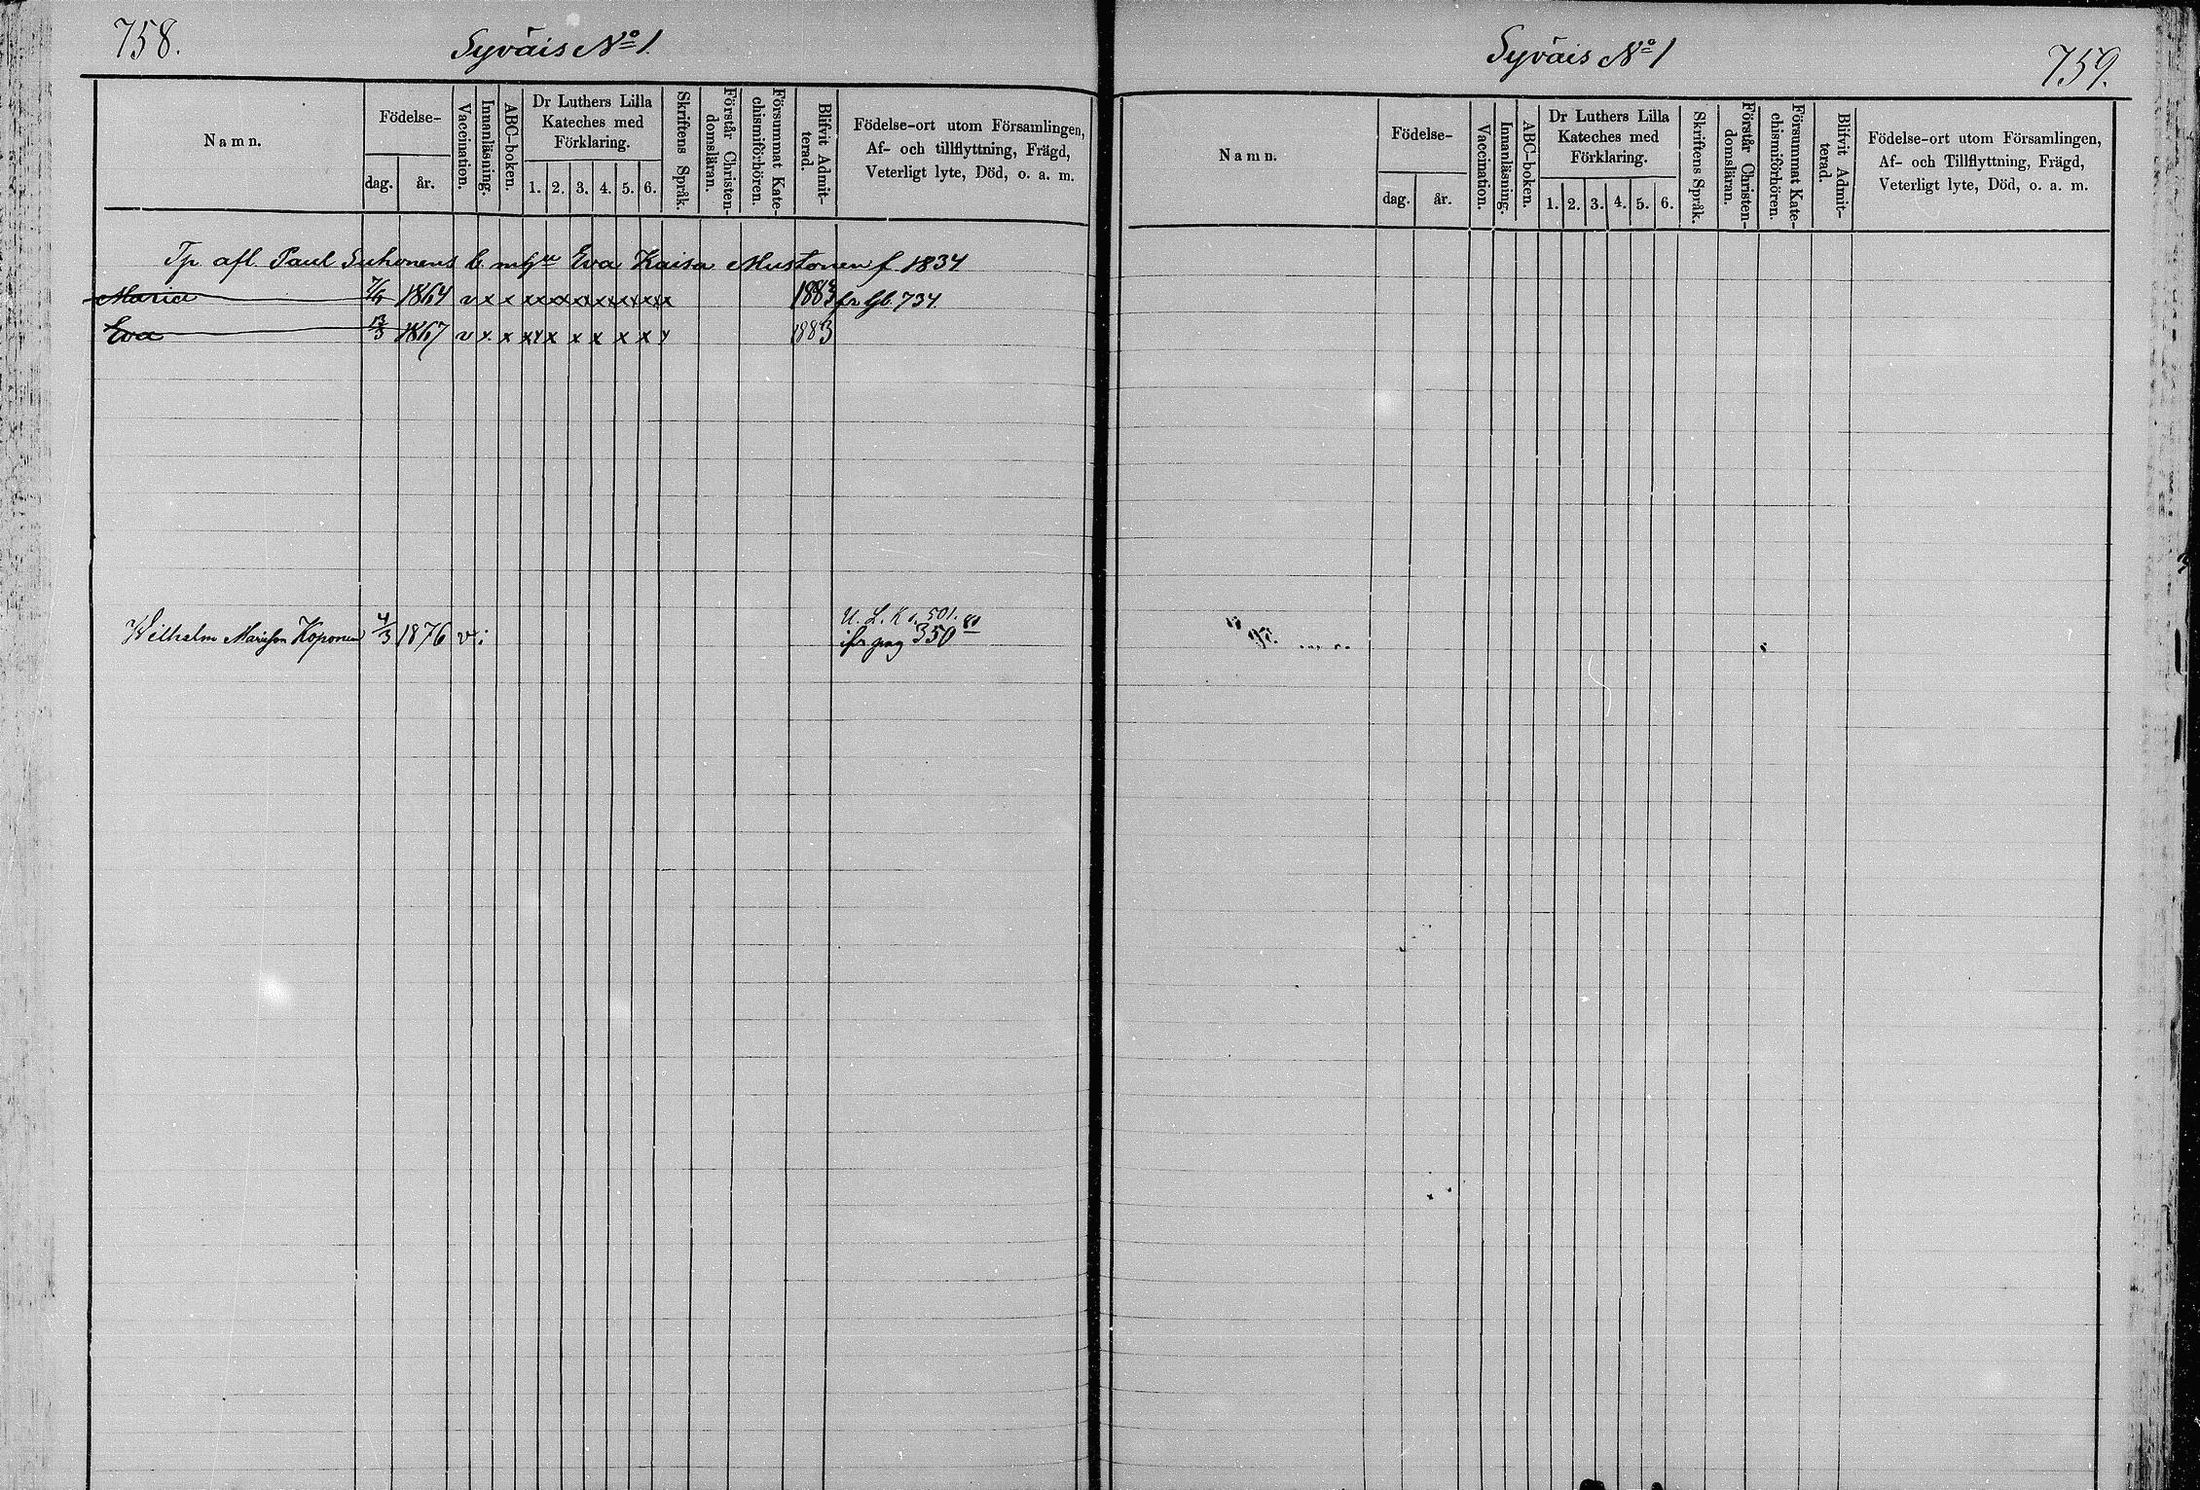 758.
Syväis No 1.
Namn.
Födelse-
dag.
år.
Vaccination.
Innanläsning.
ABC-boken.
Dr Luthers Lilla
Kateches med
Förklaring.
1. 2. 3. 4. 5. 6.
Skriftens Språk.
Förstår Christen-
domsläran.
Försummat Kate-
chismiförhören.
Blifvit Admit-
terad.
Födelse-ort utom Församlingen,
Af- och tillflyttning, Frägd,
Veterligt lyte, Död, o. a. m.
Tp afl. Paul Suhonens b. Eva Kaisa Mustonen f. 1834
Maria 1864 v x x x x x x x x x x x 1883 fr 734
Eva 1867 v x x x x x x x x x x 1883
Wilhelm Koponen 4/3 1876 v
U. L. K s. 501. 81
pag 350
Syväis No 1
759.
Namn.
Födelse-
dag.
år.
Vaccination.
Innanläsning.
ABC-boken.
Dr Luthers Lilla
Kateches med
Förklaring.
1. 2. 3. 4. 5. 6.
Skriftens Språk.
Förstår Christen-
domsläran.
Försummat Kate-
chismiförhören.
Blifvit Admit-
terad.
Födelse-ort utom Församlingen,
Af- och Tillflyttning, Frägd,
Veterligt lyte, Död, o. a. m.